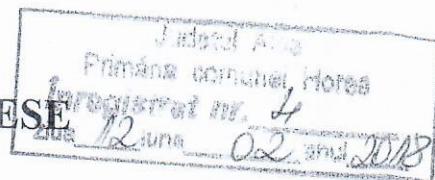 Județul Alba
Primăria comunei Horea
Înregistrat nr. 4
ESE
Ziua 12 luna 02 anul 2018